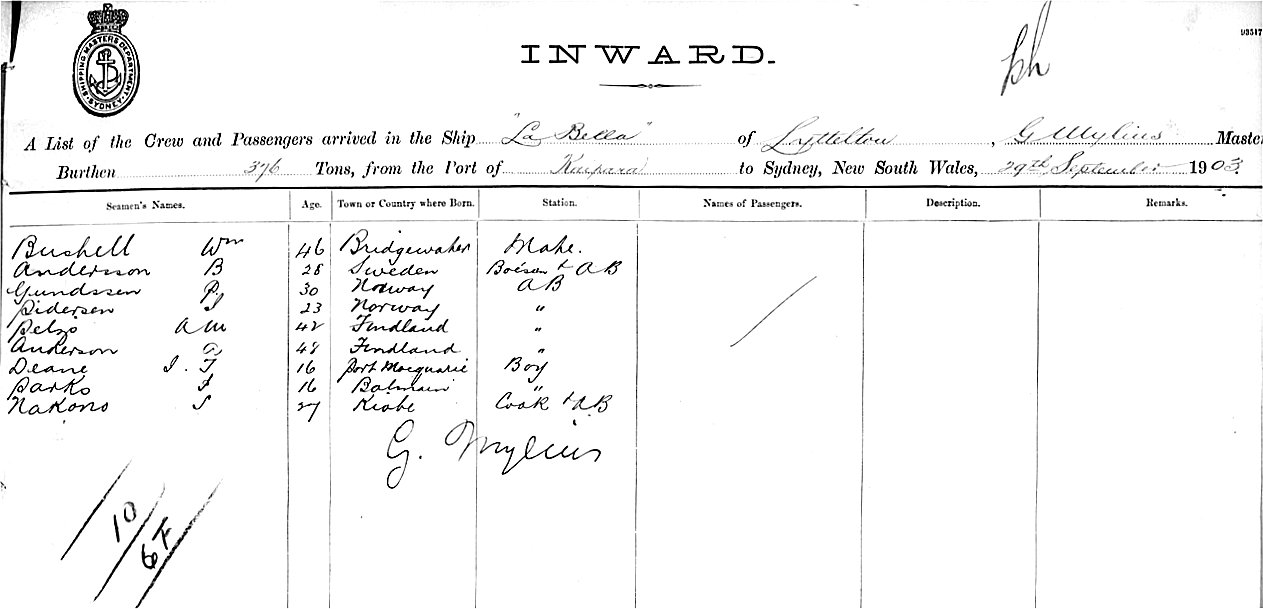 INWARD.
kh
SHIPPING MASTERS DEPARTMENT SYDNEY
A List of the Crew and Passengers arrived in the Ship "La Bella" of Lyttelton, G Mylius Master
Burthen 376 Tons, from the Port of Kaipara to Sydney, New South Wales, 29th September 1903.
Seamen's Names. Age. Town or Country where Born. Station. Names of Passengers. Description. Remarks.
Bushell Wm 46 Bridgewater Mate.
Andersson B 28 Sweden Boisan & AB
Gundssen P 30 Norway AB
Pidersen 23 Norway "
Pelzo A W 42 Findland "
Anderson 48 Findland "
Deane J. T 16 Port Macquarie Boy
Parks J 16 Balmain "
Nakono S 27 Kiobe Cook & AB
G. Mylius
10
6 F